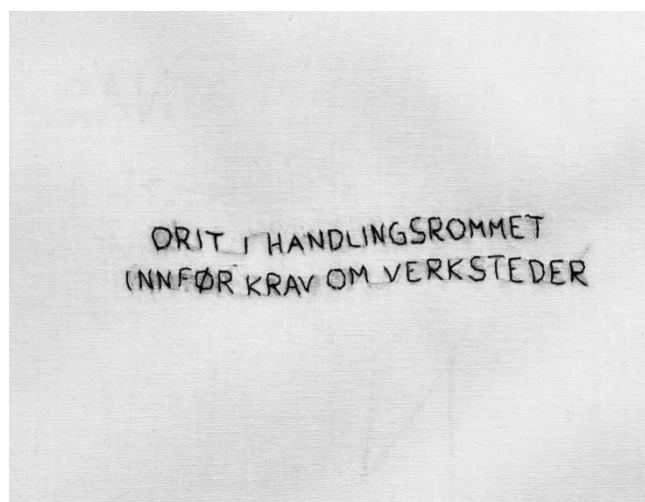 ORIT I HANDLINGSROMMET
INNFØR KRAV OM VERKSTEDER